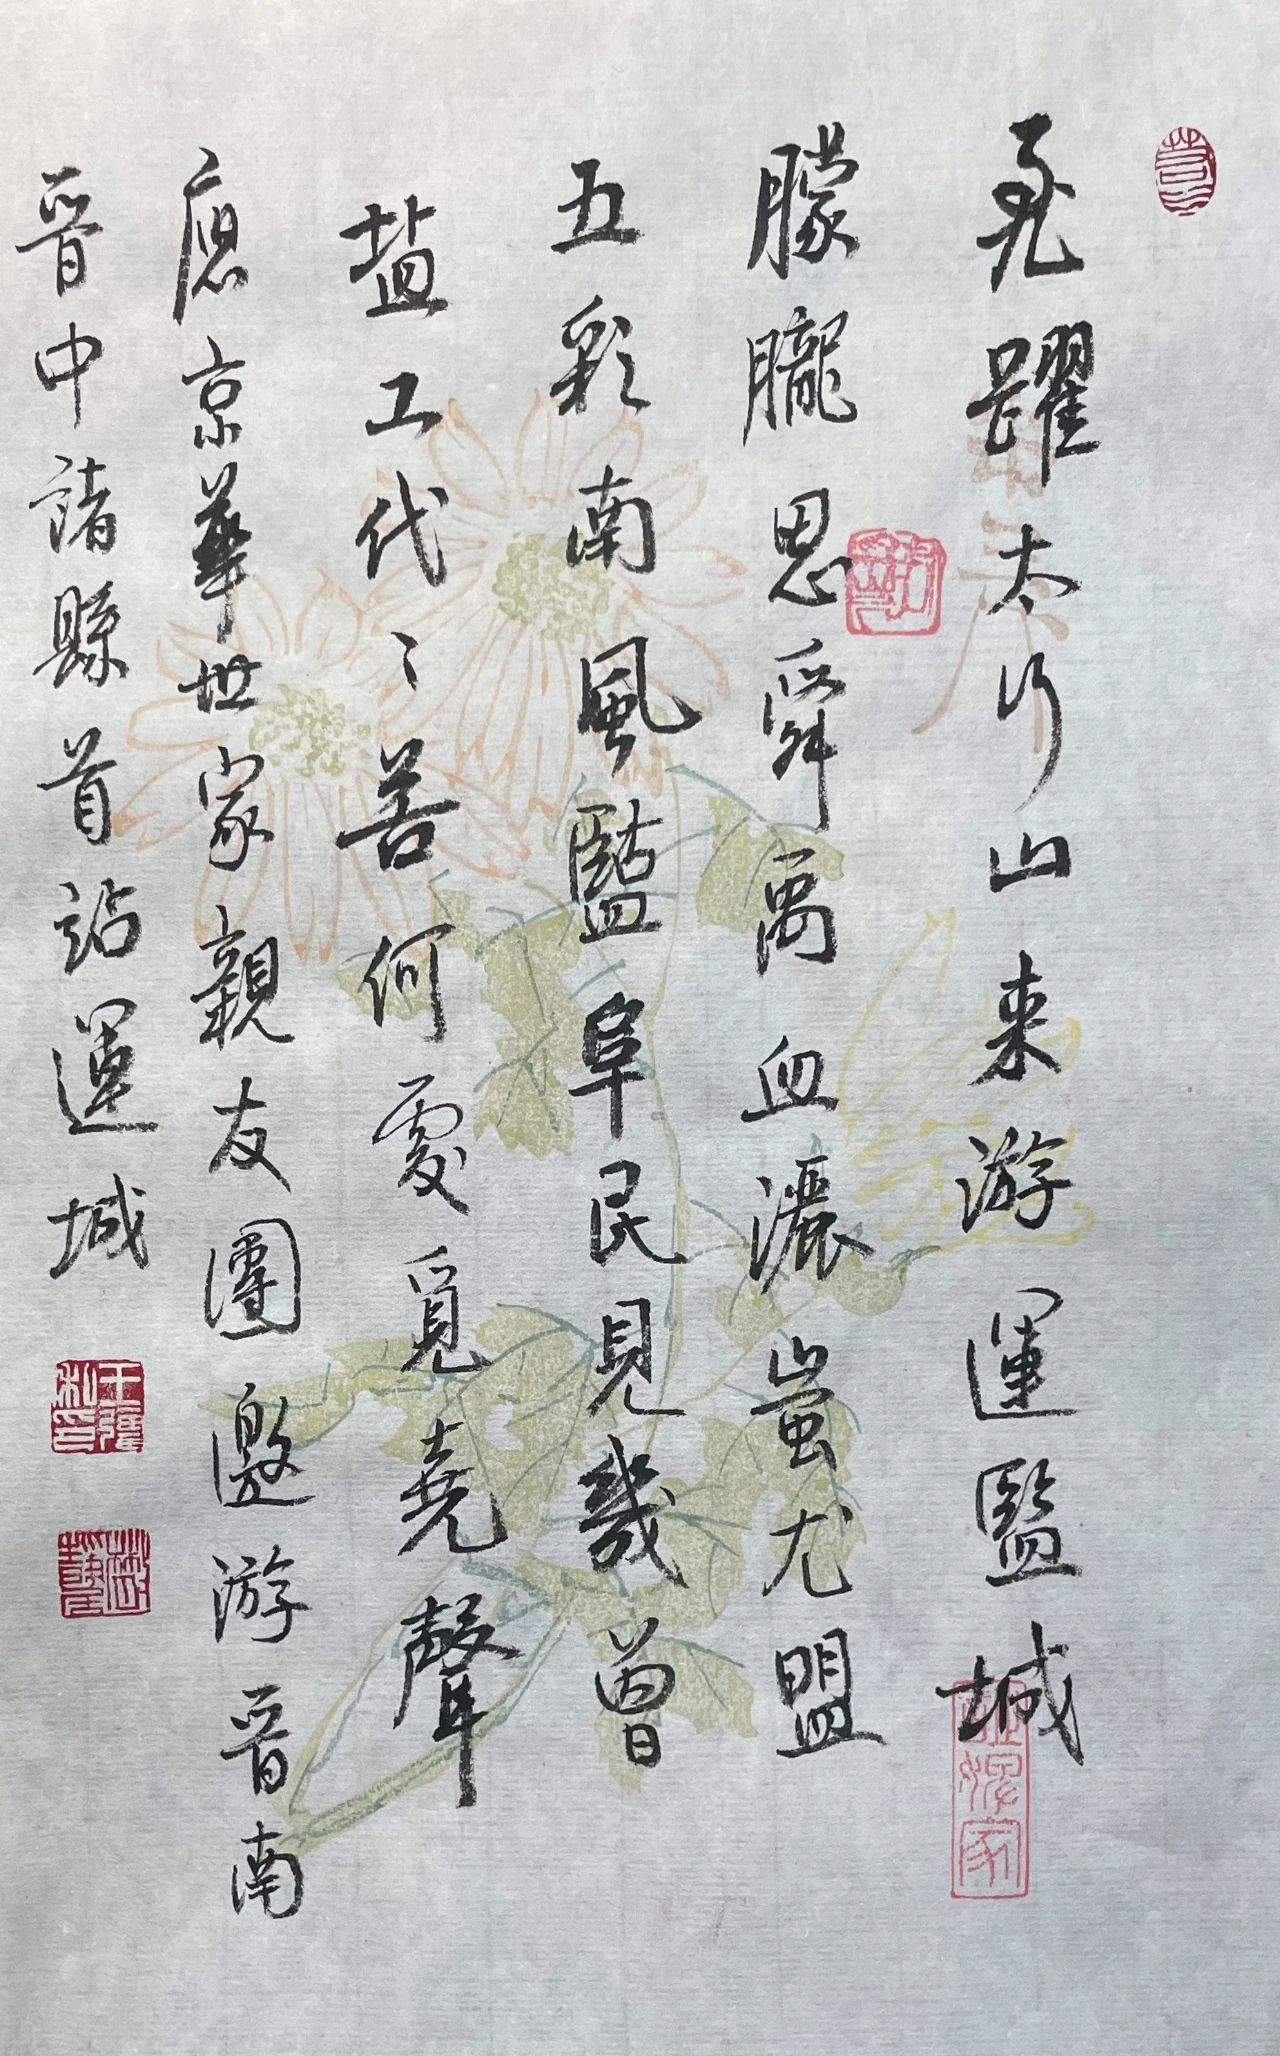 飛躍太行山来游運盬城
朦朧思舜禹血灑蚩尤盟
五彩南風盬阜民見幾曾
盐工代〻苦何處覓堯聲
應京華世家親友團邀游晉南
晉中諸縣首站運城